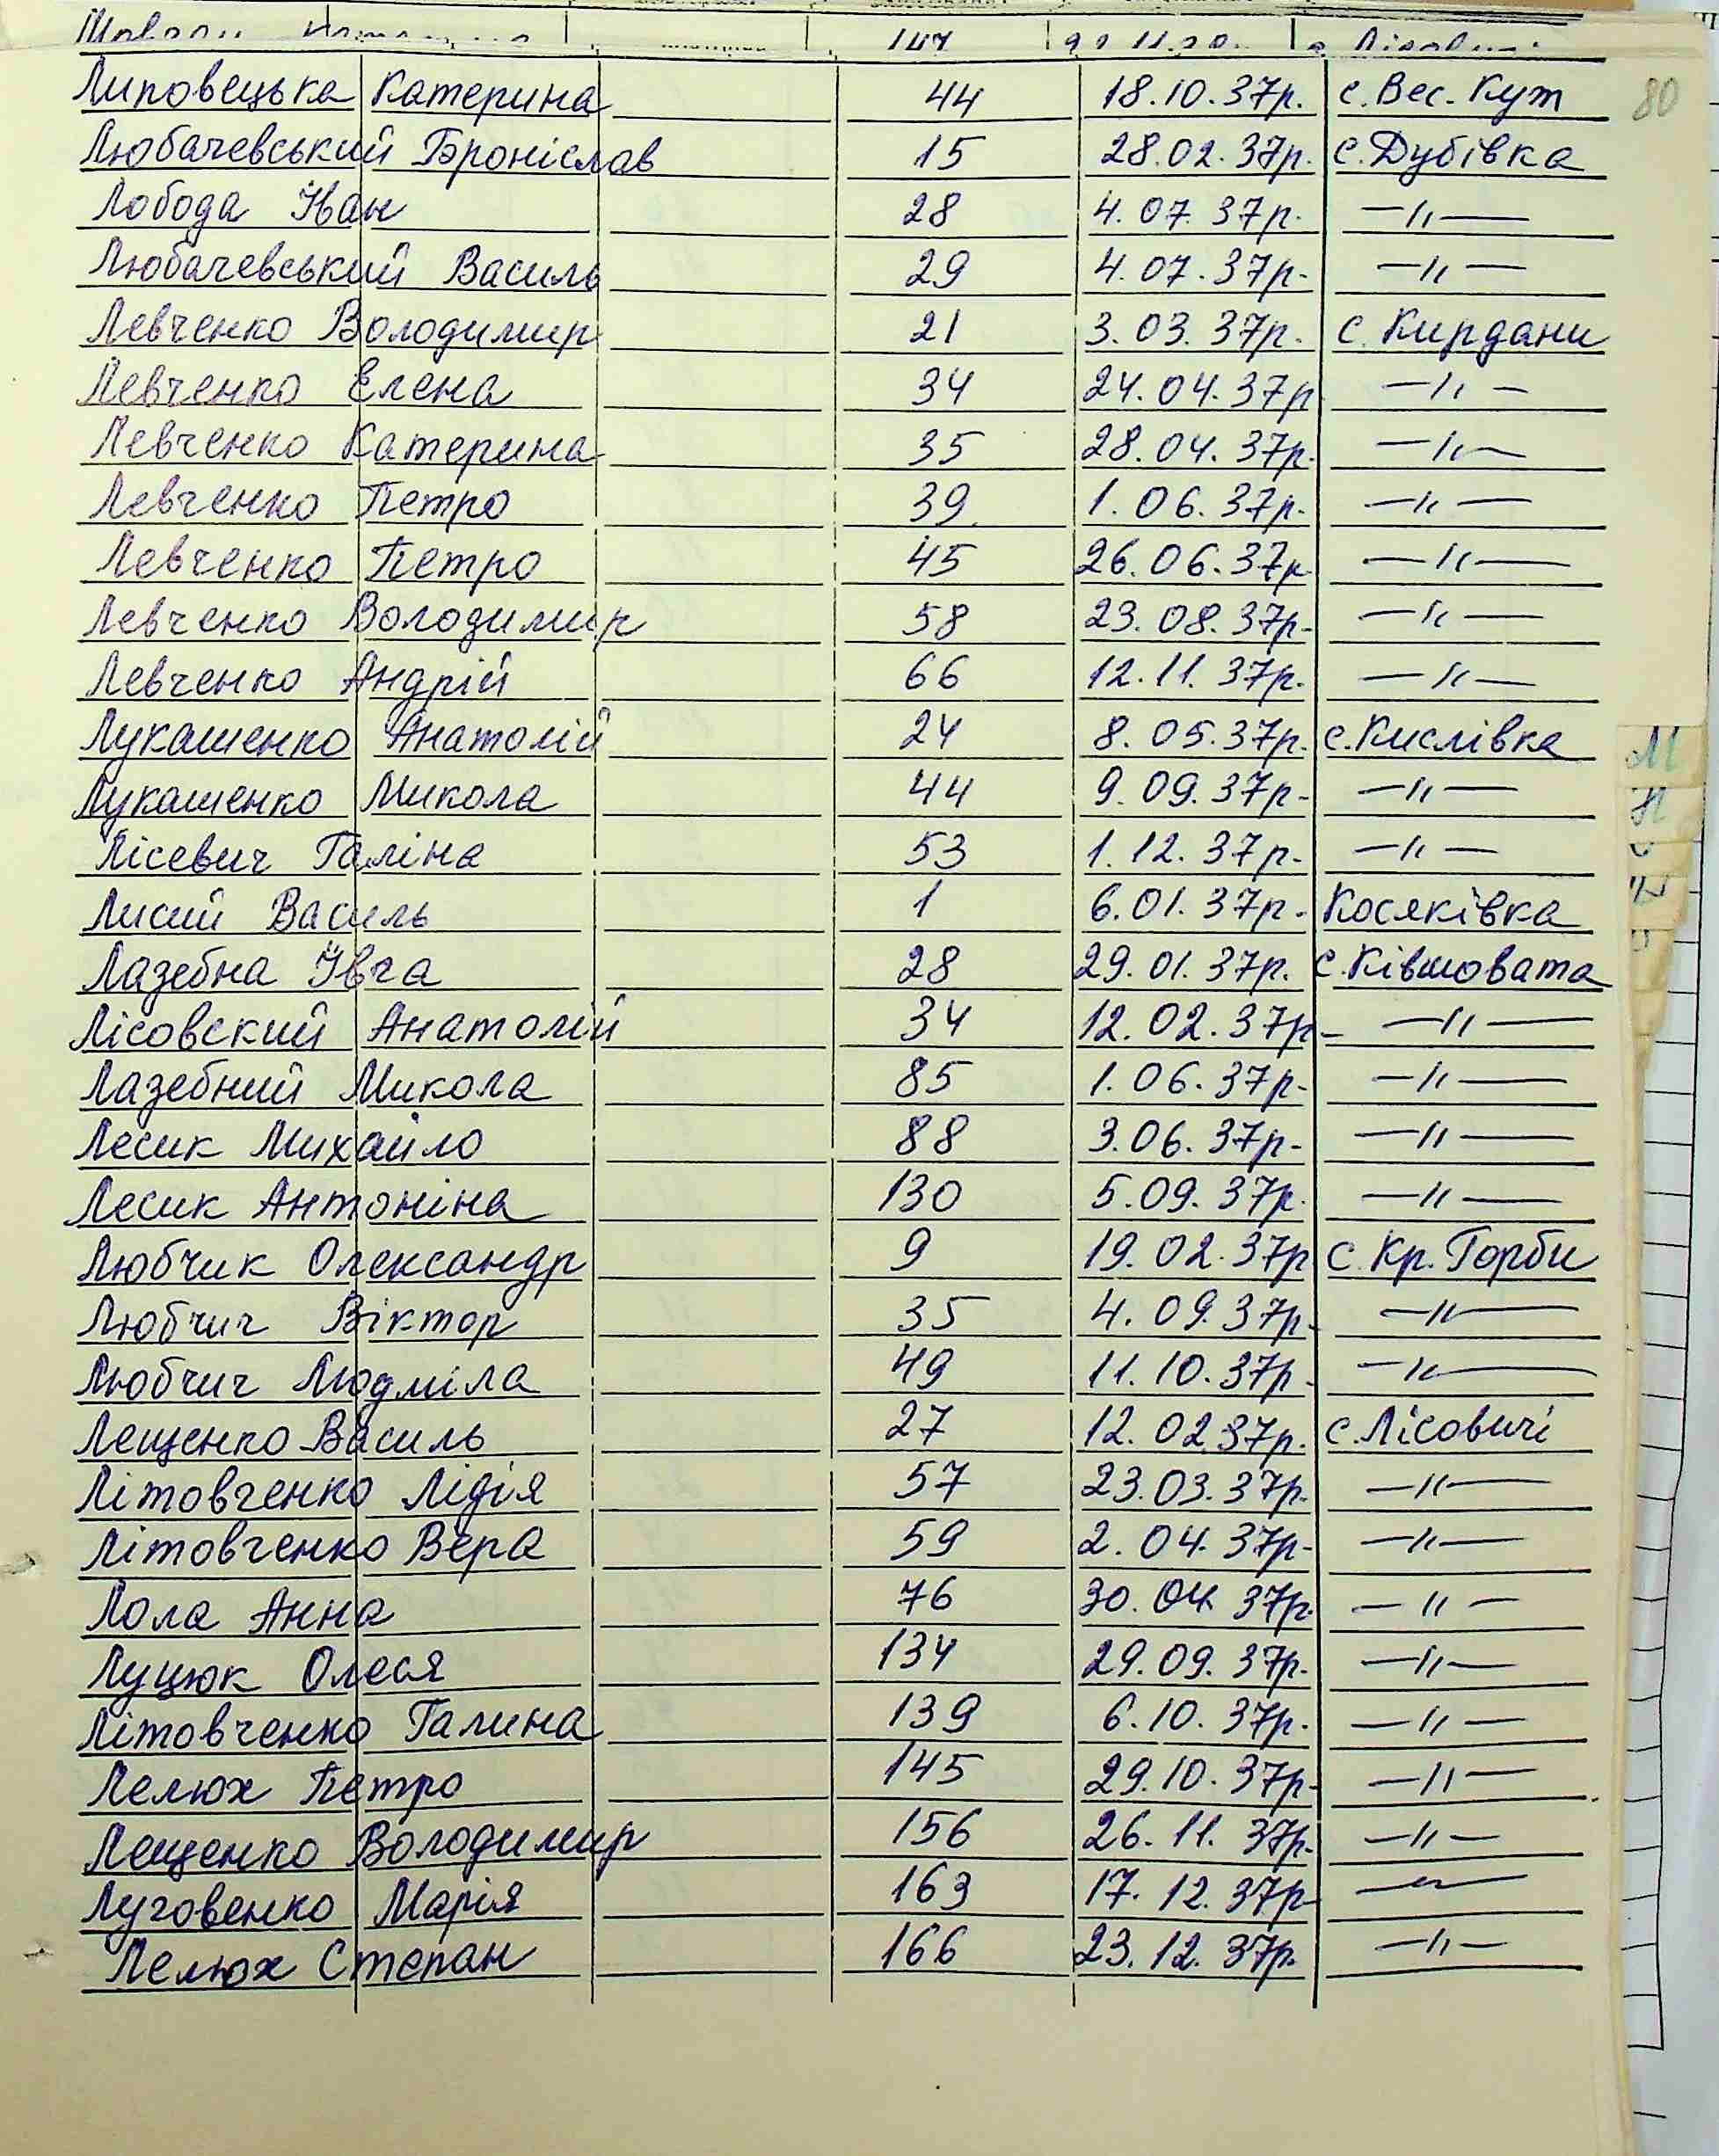 80
Липовецька Катерина 44 18.10.37р. с. Вес. Кут
Любачевський Броніслав 15 28.02.37р. с. Дубівка
Лобода Іван 28 4.07.37р. —"—
Любачевський Василь 29 4.07.37р. —"—
Левченко Володимир 21 3.03.37р. с. Кирдани
Левченко Елена 34 24.04.37р —"—
Левченко Катерина 35 28.04.37р. —"—
Левченко Петро 39 1.06.37р. —"—
Левченко Петро 45 26.06.37р —"—
Левченко Володимир 58 23.08.37р. —"—
Левченко Андрій 66 12.11.37р. —"—
Лукашенко Анатолій 24 8.05.37р. с. Кислівка
Лукашенко Микола 44 9.09.37р. —"—
Лісевич Галіна 53 1.12.37р. —"—
Лисий Василь 1 6.01.37р. Косяківка
Лазебна Івга 28 29.01.37р. с. Ківшовата
Лісовский Анатолій 34 12.02.37р. —"—
Лазебний Микола 85 1.06.37р. —"—
Лесик Михайло 88 3.06.37р. —"—
Лесик Антоніна 130 5.09.37р. —"—
Любчик Олександр 9 19.02.37р с. Кр. Горби
Любчич Віктор 35 4.09.37р. —"—
Любчич Людміла 49 11.10.37р. —"—
Лещенко Василь 27 12.02.37р. с. Лісовичі
Літовченко Лідія 57 23.03.37р. —"—
Літовченко Вера 59 2.04.37р. —"—
Лола Анна 76 30.04.37р. —"—
Луцюк Олеся 134 29.09.37р. —"—
Літовченко Галина 139 6.10.37р. —"—
Пелюх Петро 145 29.10.37р. —"—
Лещенко Володимир 156 26.11.37р. —"—
Луговенко Марія 163 17.12.37р —"—
Лелюх Степан 166 23.12.37р. —"—
М
Н